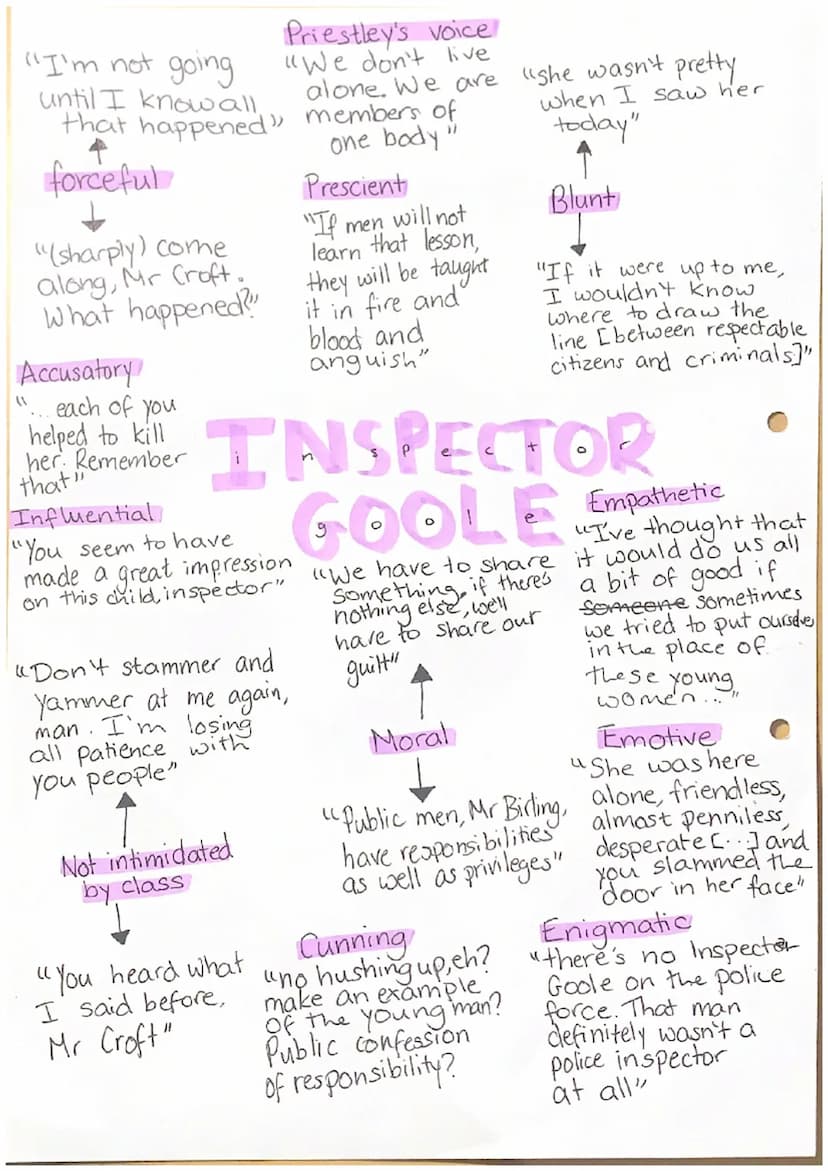 Priestley's voice
"We don't live
alone. We are
members of
one body"
"I'm not going
until I know all
that happened"
forceful
"(sharply) come
along, Mr Croft.
What happened?"
Prescient
"If men will not
learn that lesson,
they will be taught
it in fire and
blood and
anguish"
"she wasn't pretty
when I saw her
today"
Blunt
"If it were up to me,
I wouldn't know
where to draw the
line [between respectable
citizens and criminals]"
Accusatory
"... each of you
helped to kill
her. Remember
that"
INSPECTOR
inspector
GOOLE
goole
Influential
"You seem to have
made a great impression
on this child, inspector"
"We have to share
something, if there's
nothing else, we'll
have to share our
guilt"
Moral
"Public men, Mr Birling,
have responsibilities
as well as privileges"
Empathetic
"I've thought that
it would do us all
a bit of good if
someone sometimes
we tried to put ourselves
in the place of
these young
women..."
"Don't stammer and
yammer at me again,
man. I'm losing
all patience with
you people"
Not intimidated
by class
"You heard what
I said before,
Mr Croft"
Emotive
"She was here
alone, friendless,
almost penniless,
desperate [...] and
you slammed the
door in her face"
Cunning
"no hushing up, eh?
make an example
of the young man?
Public confession
of responsibility?
Enigmatic
"there's no Inspector
Goole on the police
force. That man
definitely wasn't a
police inspector
at all"